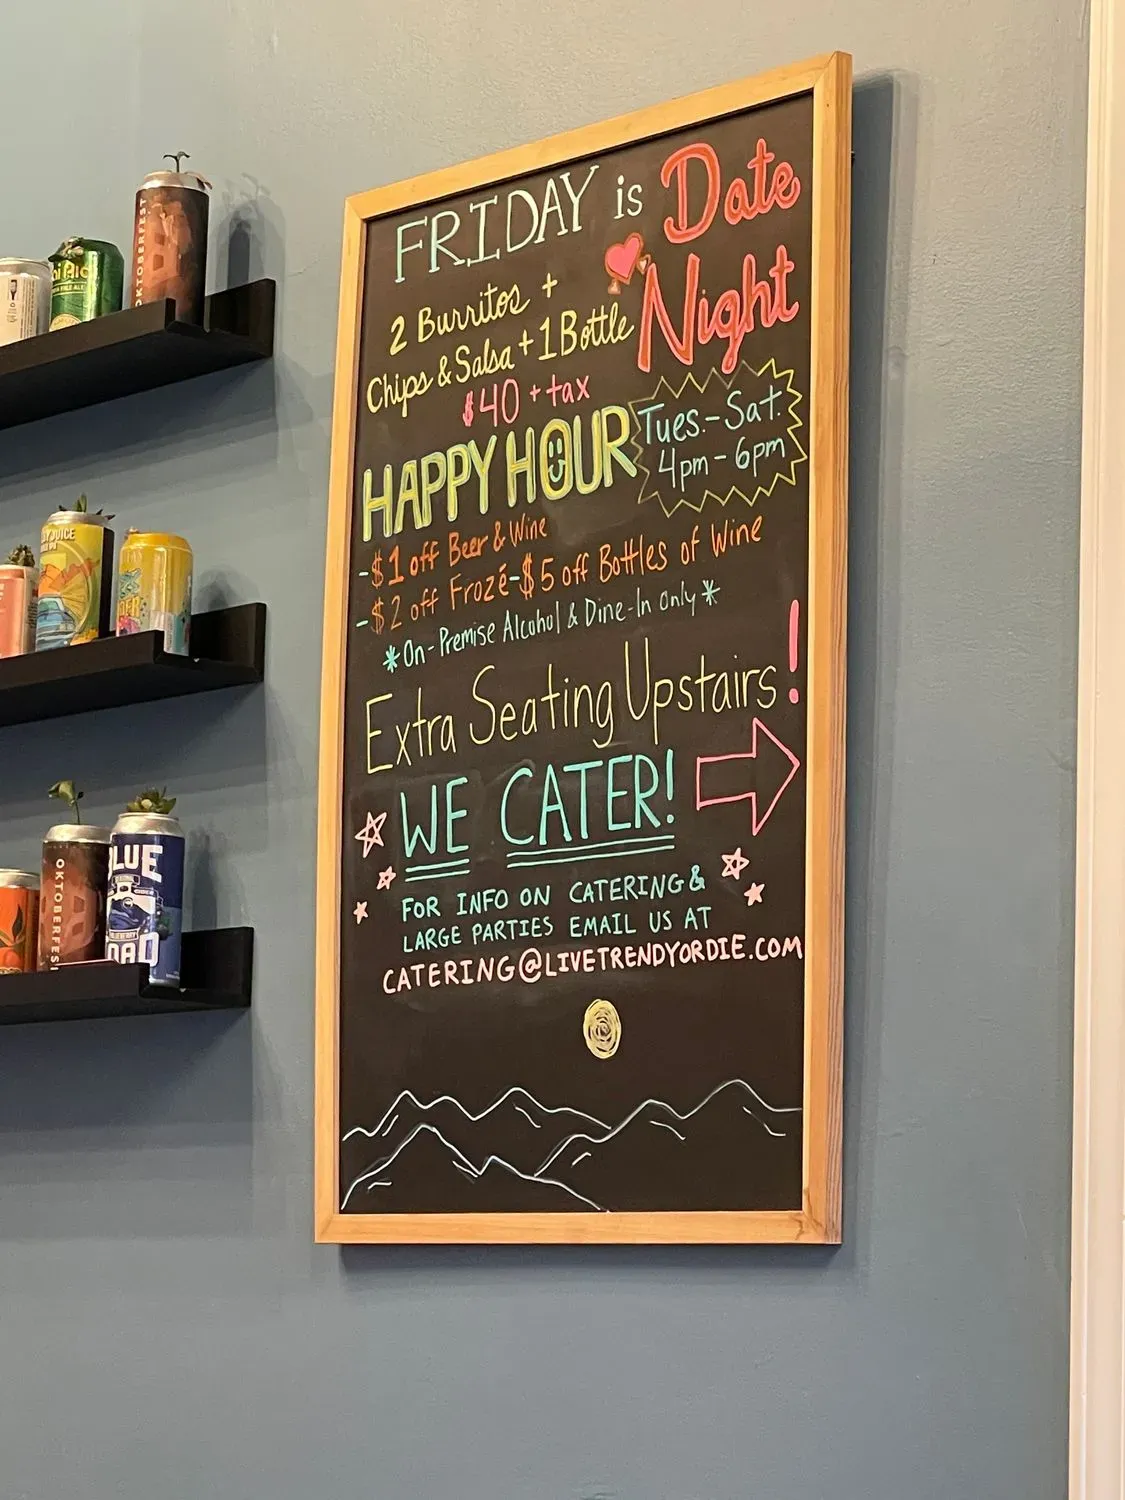 FRIDAY is Date Night
2 Burritos +
Chips & Salsa + 1 Bottle
$40 + tax
HAPPY HOUR
Tues.-Sat.
4pm-6pm
-$1 off Beer & Wine
-$2 off Frozé-$5 off Bottles of Wine
*On-Premise Alcohol & Dine-In Only*
Extra Seating Upstairs!
WE CATER!
FOR INFO ON CATERING &
LARGE PARTIES EMAIL US AT
CATERING@LIVETRENDYORDIE.COM
OKTOBERFEST
PALE ALE
JUICE
OKTOBERFEST
BLUE